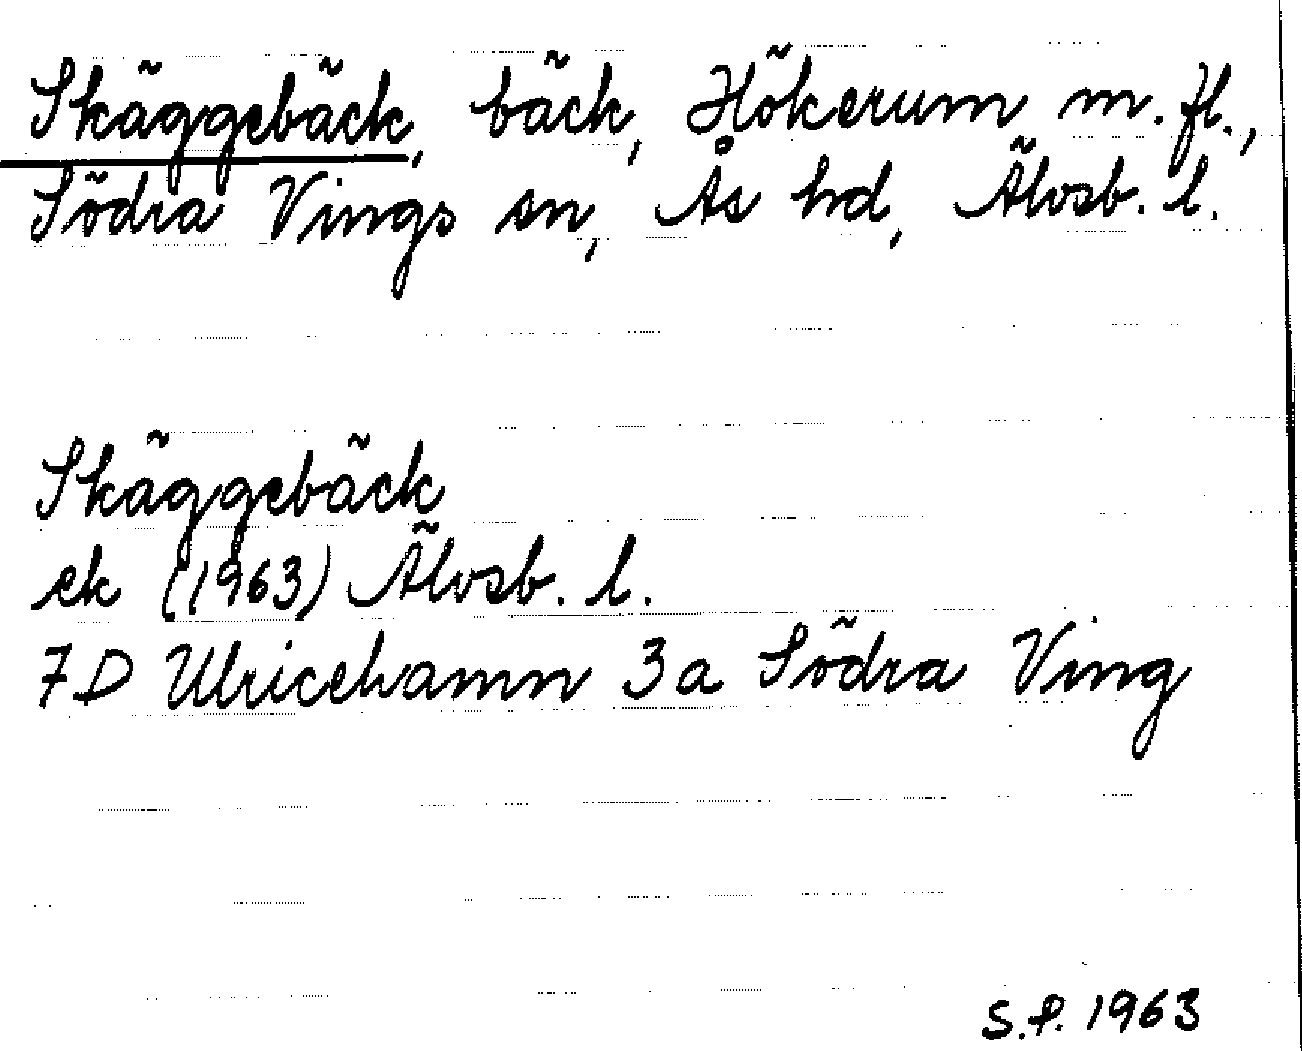 Skäggebäck, bäck, Hökerum m. fl.,
Södra Vings sn, Ås hd, Älvsb. l.
Skäggebäck
ek (1963) Älvsb. l.
7D Ulricehamn 3a Södra Ving
S.P. 1963